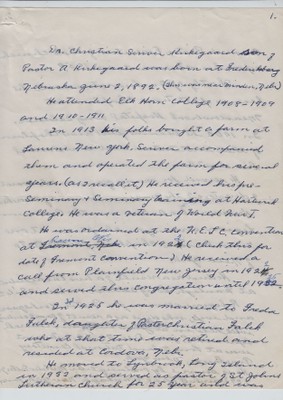 1.
Dr. Christian Sivver Kirkegaard son of
Pastor A Kirkegaard was born at Fredericksburg
Nebraska June 2, 1892. (this was near Minden, Nebr)
He attended Elk Horn College 1908-1909
and 1910-1911
In 1913 his folks bought a farm at
Laurens New York. accompanied
them and operated the farm for several
years (as I recall it) He received his pre-
Seminary & Seminary training at Hartwick
College. He was a veteran of World War I.
He was ordained at the U.E.L.C. convention
at Nebr in 192 (Check this for
date of Fremont Convention). He received a
call from Plainfield New Jersey in 192
and served this congregation until 1932
In 1925 he was married to Freda
Falck, daughter of Pastor Christian Falck
who at that time was retired and
resided at Cordova, Nebr.
He moved to Lynbrook, Long Island
in 1932 and served as pastor of St Johns
Lutheran Church for 25 year and was